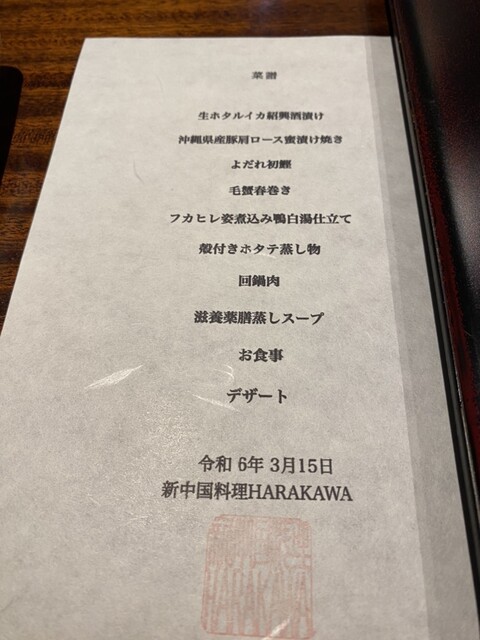 菜譜
生ホタルイカ紹興酒漬け
沖縄県産豚肩ロース蜜漬け焼き
よだれ初鰹
毛蟹春巻き
フカヒレ姿煮込み鴨白湯仕立て
殻付きホタテ蒸し物
回鍋肉
滋養薬膳蒸しスープ
お食事
デザート
令和 6年 3月15日
新中国料理HARAKAWA
HARAKAWA